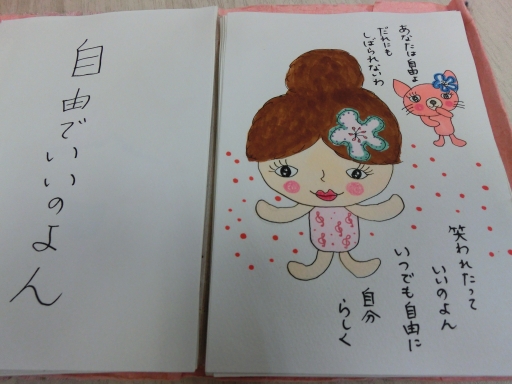 自由でいいのよん
あなたは自由よ
だれにも
しばられないわ
笑われたって
いいのよん
いつでも自由に
自分
らしく